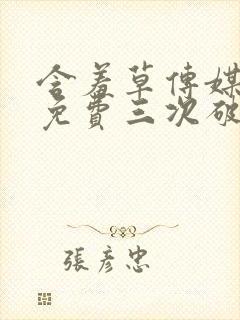 含羞草傳媒
免費三次破
張彥忠